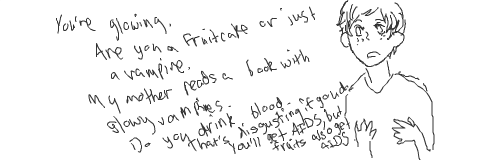 You're glowing.
Are you a fruitcake or just
a vampire.
My mother reads a book with
glowy vampires.
Do you drink blood. if you do
that's disgusting
you'll get AIDS, but
fruits also get
AIDS